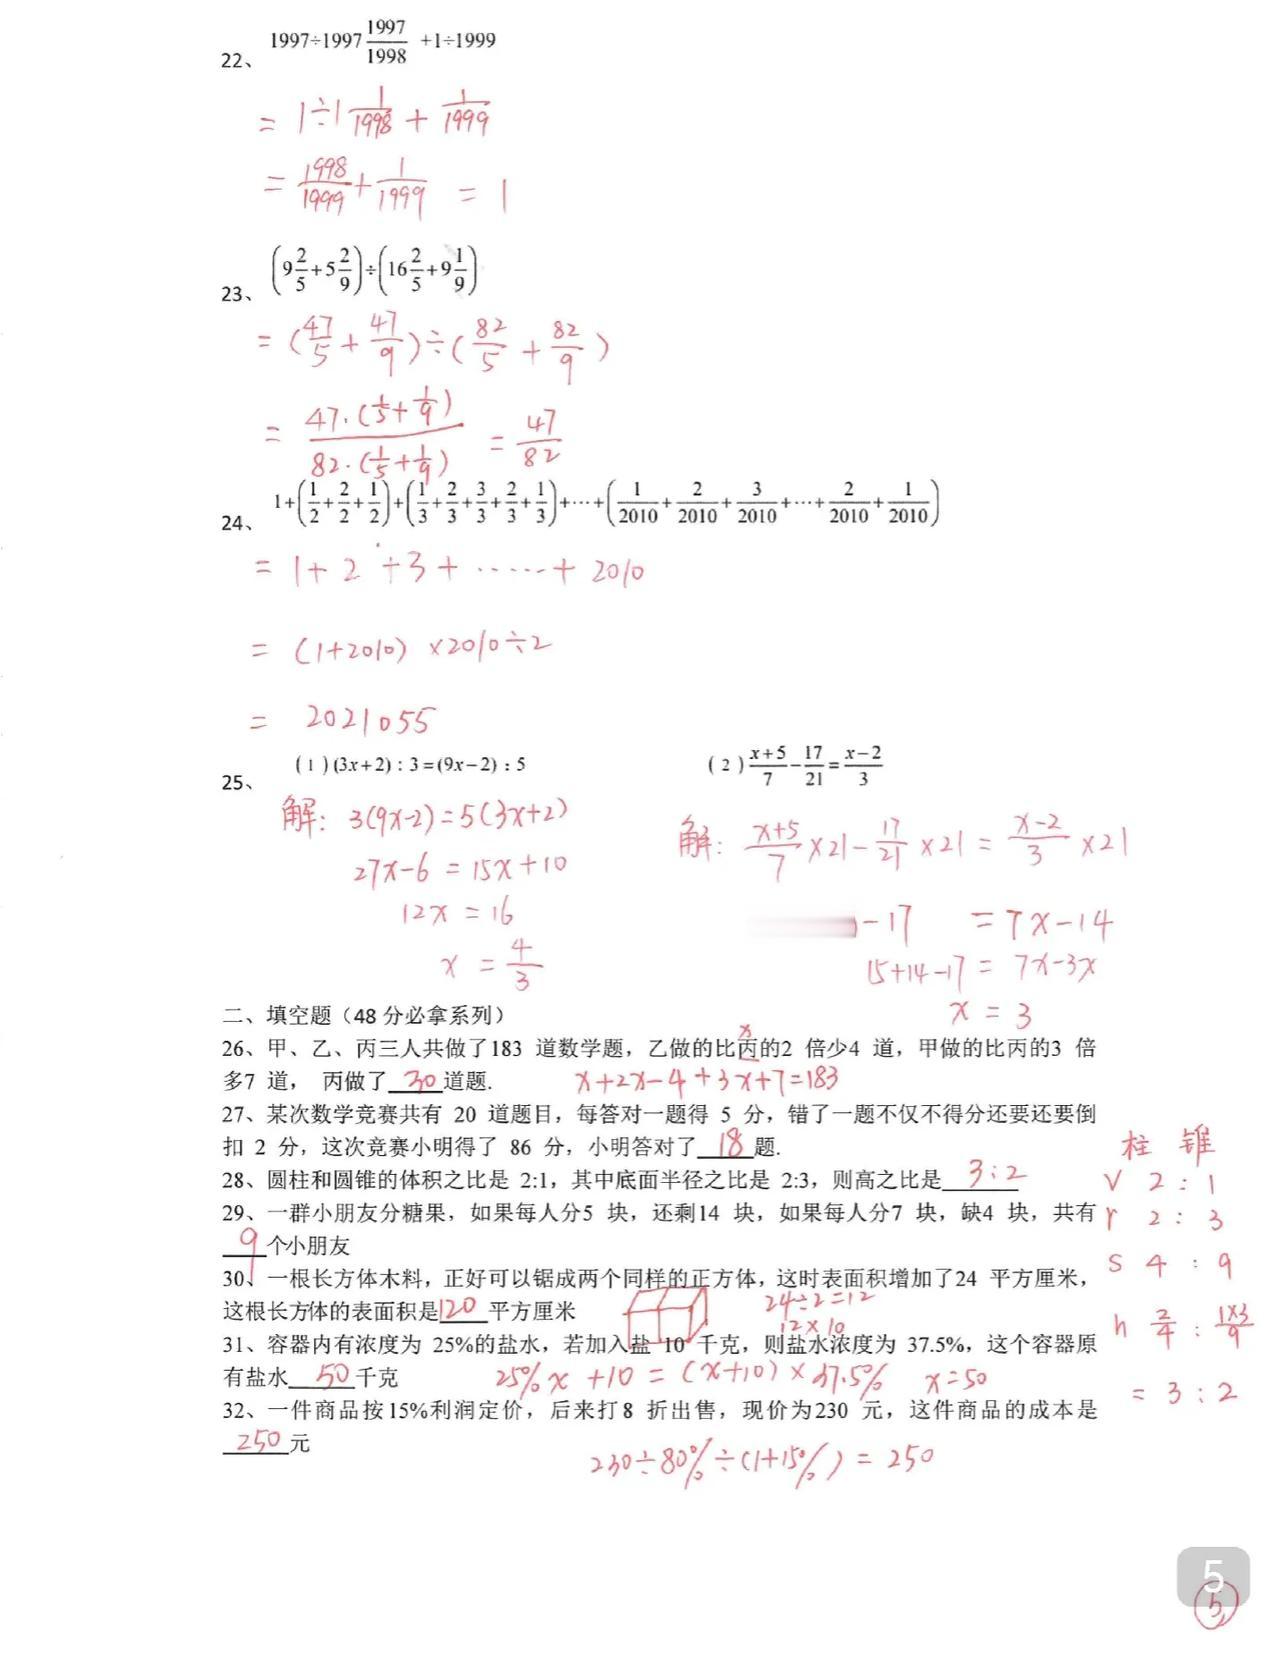 22、 1997÷1997 1997/1998 +1÷1999
= 1÷1 1/1998 + 1/1999
= 1998/1999 + 1/1999 = 1
23、 (9 2/5+5 2/9)÷(16 2/5+9 1/9)
= (47/5 + 47/9)÷(82/5 + 82/9)
= 47·(1/5+1/9)/82·(1/5+1/9) = 47/82
24、 1+(1/2+2/2+1/2)+(1/3+2/3+3/3+2/3+1/3)+⋯+(1/2010+2/2010+3/2010+⋯+2/2010+1/2010)
= 1+2+3+……+2010
= (1+2010)×2010÷2
= 2021055
25、 (1)(3x+2):3=(9x−2):5
解: 3(9x-2)=5(3x+2)
27x-6=15x+10
12x=16
x=4/3
(2) x+5/7 − 17/21 = x−2/3
解: x+5/7 ×21 - 17/21 ×21 = x-2/3 ×21
-17 =7x-14
15+14-17=7x-3x
x=3
二、填空题（48 分必拿系列）
26、甲、乙、丙三人共做了183 道数学题，乙做的比丙的2 倍少4 道，甲做的比丙的3 倍
x
多7 道， 丙做了 30 道题. x+2x-4+3x+7=183
27、某次数学竞赛共有 20 道题目，每答对一题得 5 分，错了一题不仅不得分还要还要倒
扣 2 分，这次竞赛小明得了 86 分，小明答对了 18 题.
28、圆柱和圆锥的体积之比是 2:1，其中底面半径之比是 2:3，则高之比是 3:2
29、一群小朋友分糖果，如果每人分5 块，还剩14 块，如果每人分7 块，缺4 块，共有
9 个小朋友
30、一根长方体木料，正好可以锯成两个同样的正方体，这时表面积增加了24 平方厘米，
这根长方体的表面积是 120 平方厘米
24÷2=12
12×10
31、容器内有浓度为 25%的盐水，若加入盐 10 千克，则盐水浓度为 37.5%，这个容器原
有盐水 50 千克 25%x+10=(x+10)×37.5% x=50
32、一件商品按15%利润定价，后来打8 折出售，现价为230 元，这件商品的成本是
250 元
230÷80%÷(1+15%)=250
柱 锥
V 2:1
r 2:3
S 4:9
h 2/4 : 1×3/9
=3:2
5
5